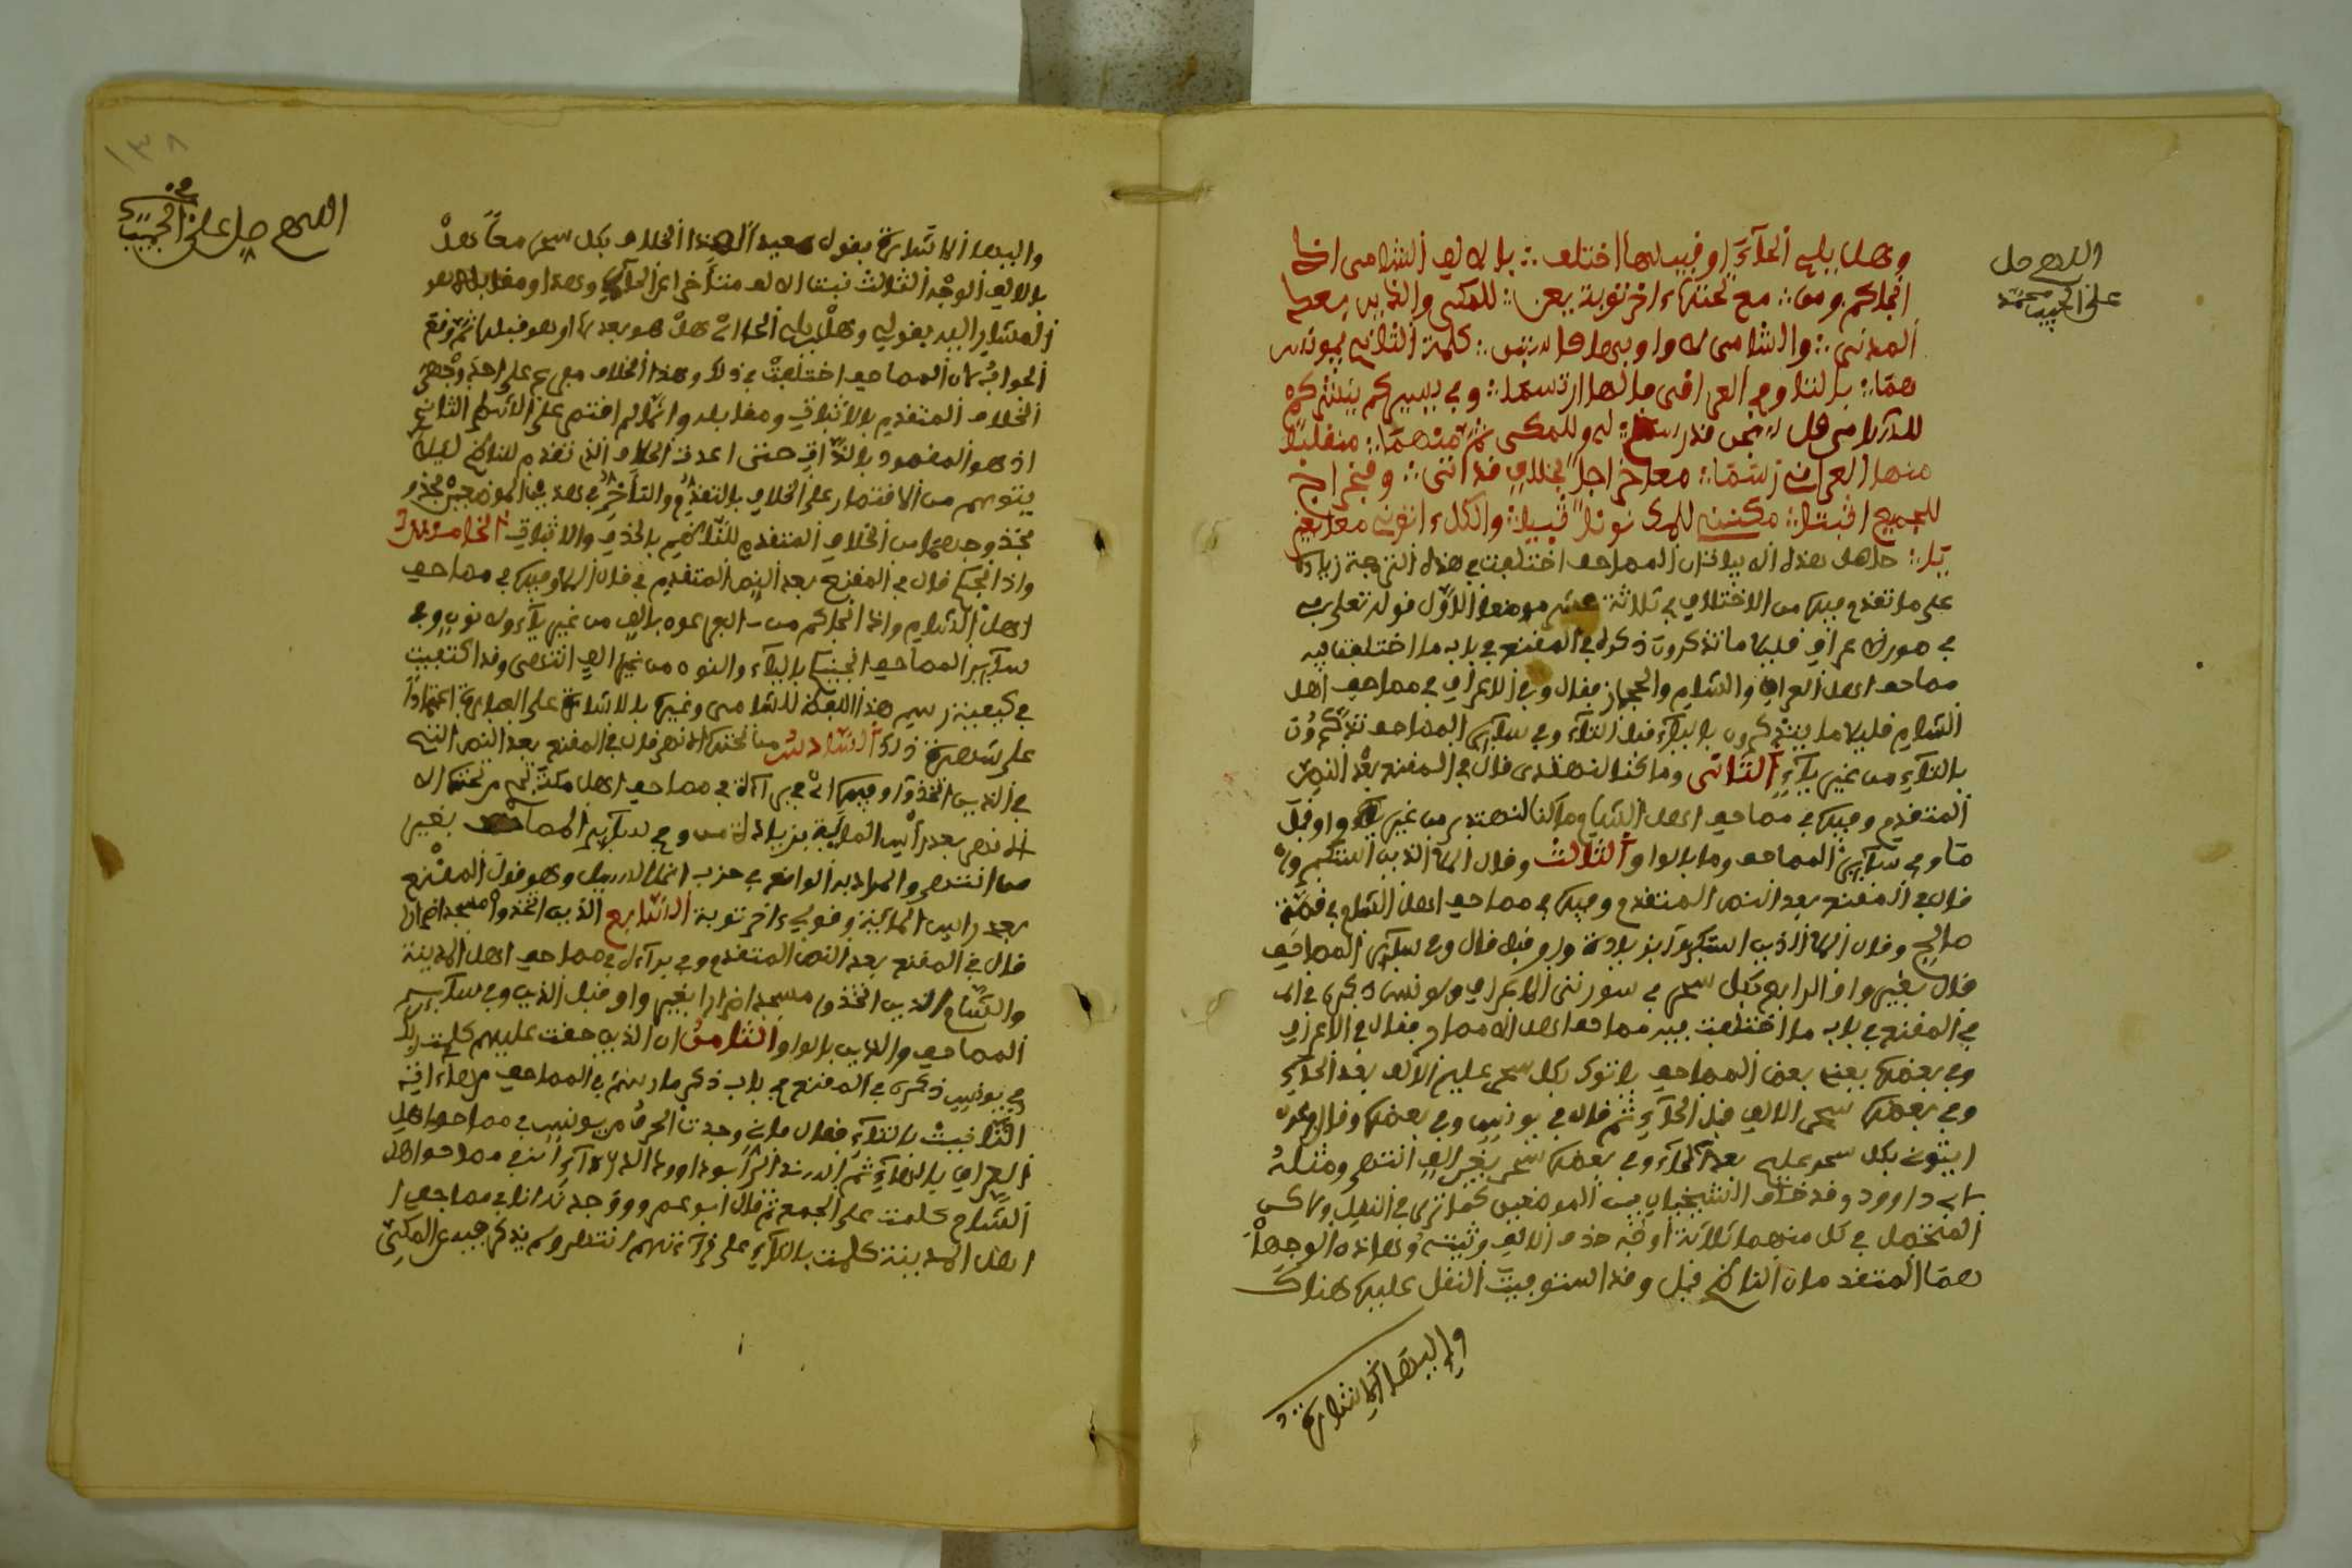 اللهم صل
على الحبيب محمد
وهل يلى الحاء او قبيلها اختلف ∴ بالالف الشامى اذا
انجاكم ومن ∴ مع تحتها ءاخر توبة يعن ∴ للمكى والذين بعد
المدنى ∴ والشامى لا واو بها فاستبن ∴ كلمة الثانى بيونس
هما ∴ بالتا وفى العراقى بالها ارتسما ∴ وفى يسيركم ينشركم
للشامى قل سبحن قد رسم ∴ له وللمكى ثم منهما ∴ منقلبا
منها العراقى رسما ∴ معا خراجا بخلاف قد اتى ∴ وفخراج
للجميع اثبتا ∴ مكننى للمك نونا ثبيا ∴ والكل ءاتونى معا بغير
يا ∴ حاصل هذه الابيات ان المصاحف اختلفت فى هذه الترجمة زيادة
على ما تقدم فيها من الاختلاف فى ثلاثة عشر موضعا الاول قوله تعلى
فى سورة الاعراف قليلا ما تذكرون ذكره فى المقنع فى باب ما اختلفت فيه
مصاحف اهل العراق والشام والحجاز فقال وفى الاعراف فى مصاحف اهل
الشام قليلا ما يتذكرون بالياء قبل التاء وفى ساير المصاحف تذكرون
بالتاء من غير ياء الثانى وما كنا لنهتدى قال فى المقنع بعد النص
المتقدم وفيها فى مصاحف اهل الشام ما كنا لنهتدى من غير واو قبل
ما وفى ساير المصاحف وما بالواو الثالث وقال الملا الذين استكبروا
قال فى المقنع بعد النص المتقدم وفيها فى مصاحف اهل الشام فى قصة
صالح وقال الملا الذين استكبروا بزيادة واو قبل قال وفى ساير المصاحف
قال بغير واو الرابع بكل سحر فى سورتى الاعراف ويونس ذكره
فى المقنع فى باب ما اختلفت فيه مصاحف اهل الامصار فقال فى الاعراف
وفى بعضها يعنى بعض المصاحف ياتوك بكل سحر عليم الالف بعد الحاء
وفى بعضها سحر الالف قبل الحاء ثم قال فى يونس وفى بعضها وقال فرعون
ايتونى بكل سحر عليم بعد الحاء وفى بعضها سحر بغير الف انتهى ومثله
لابى داوود وقد خالف الشيخان بين الموضعين كما ترى فى النقل ولاكن
المتحصل فى كل منهما ثلاثة اوجه حذف الالف وثبته وهاذه الوجها
هما المتقدمان للناظم قبل وقد استوفيت النقل عليها هناك
واليها الاشارة
١٣٨
اللهم صل على الحبيب
واليها الاشارة بقوله الخلاف بكل سحر معا هل
بالالف الوجه الثالث ثبت الالف متاخرا عن الحاء وهذا ومقابله هو
المشار اليه بقوله وهل يلى الحاء اى هل هو بعدها او هو قبلها ثم وقع
الجواب بان المصاحف اختلفت فى ذلك وهذا الخلاف مفرع على احد وجهى
الخلاف المتقدم بالاثبات ومقابله وانما لم اقتصر على الثانى
اذ هو المقصود بالذات حتى اعدت الخلاف الذى تقدم للناظم ليلا
يتوهم من الاقتصار على الخلاف بالتقديم والتاخر فى هذين الموضعين
من الخلاف المتقدم للناظم بالحذف والاثبات الخامس
واذ انجيكم قال فى المقنع بعد النص المتقدم فى قال الملا وفيها فى مصاحف
اهل الشام واذ انجاكم من ال فرعون بالف من غير ياء ولا نون وفى
ساير المصاحف انجينكم بالياء والنون من غير الف انتهى وقد اكتفيت
فى كيفية رسم هذا اللفظ للشامى وغيره بالاشارة على العبارة اعتمادا
على شهرة ذلك السادس من تحتها الانهر قال فى المقنع بعد النص الذى
فى الذين اتخذوا وفيها اى فى براءة فى مصاحف اهل مكة تجرى من تحتها
الانهر بعد راس الماية بزيادة من وفى ساير المصاحف بغير
من انتهى والمراد به الواقع فى حزب انما السبيل وهو قول المقنع
بعد راس الماية وقولى ءاخر توبة السابع الذين اتخذوا مسجدا ضرارا
قال فى المقنع بعد النص المتقدم وفى براءة فى مصاحف اهل المدينة
والشام الذين اتخذوا مسجدا ضرارا بغير واو قبل الذين وفى ساير
المصاحف والذين بالواو الثامن ان الذين حقت عليهم كلمت ربك
فى يونس ذكره فى المقنع فى باب ذكر ما رسم فى المصاحف من هاءات
التانيث بالتاء فقال فانى وجدت الحرف من يونس فى مصاحف اهل
العراق بالهاء ثم
الشام كلمت على الجمع ثم قال ابو عمرو ووجدته انا فى مصاحف
اهل المدينة كلمت بالتاء على قراءتهم انتهى ولم يذكر فيه عن المكى